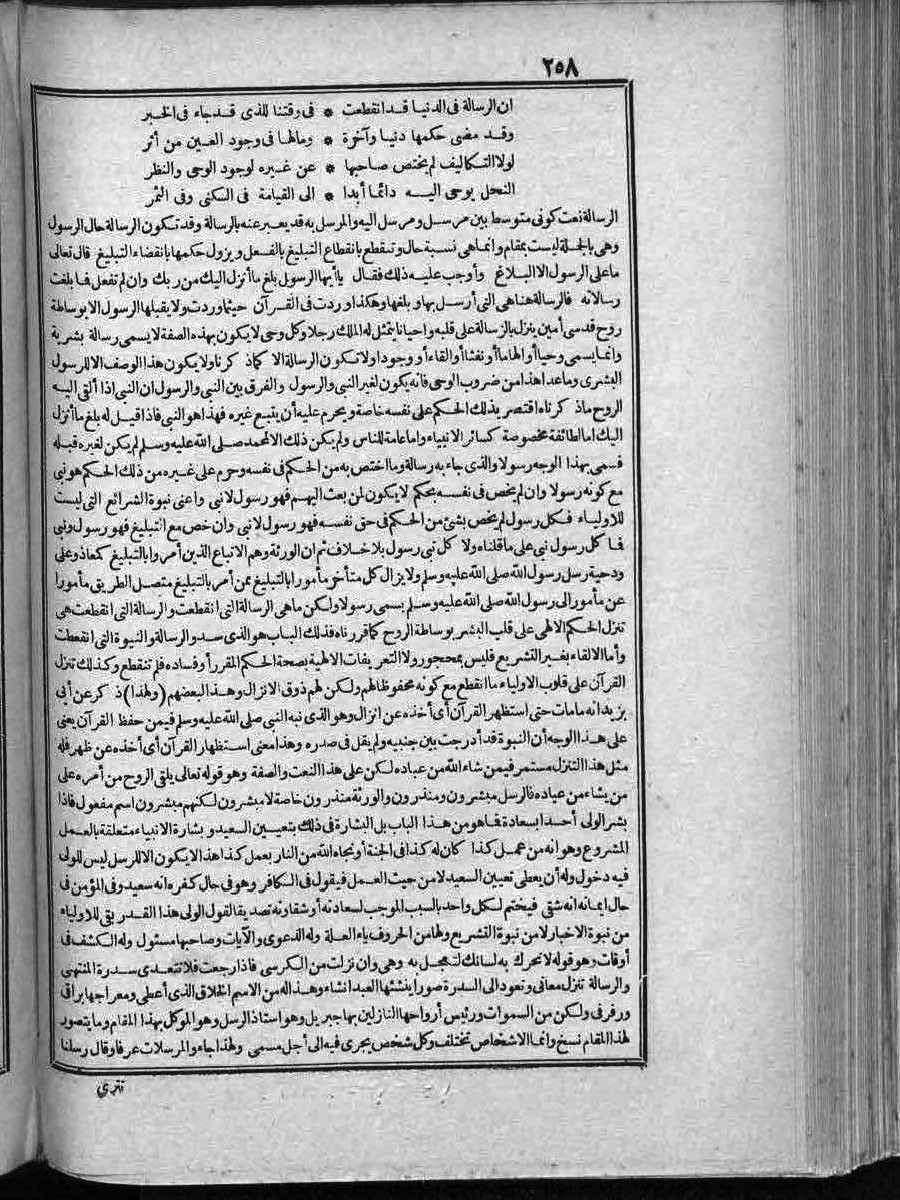 ٢٥٨
ان الرسالة فى الدنيا قد انقطعت * فى وقتنا للذى قد جاء فى الخبر
وقد مضى حكمها دنيا وآخرة * ومالها فى وجود العين من أثر
لولا التكاليف لم يختص صاحبها * عن غيره لوجود الوحى والنظر
النحل يوحى اليه دائما أبدا * الى القيامة فى السكنى وفى الثمر
الرسالة نعت كونى متوسط بين مرسل ومرسل اليه والمرسل به قد يعبر عنه بالرسالة وقد تكون الرسالة حال الرسول
وهى بالجملة ليست بمقام وانما هى نسبة حال وتنقطع بانقطاع التبليغ بالفعل ويزول حكمها بانقضاء التبليغ قال تعالى
ما على الرسول الا البلاغ وأوجب عليه ذلك فقال يا أيها الرسول بلغ ما أنزل اليك من ربك وان لم تفعل فما بلغت
رسالاته فالرسالة هنا هى التى أرسل بها وبلغها وهكذا وردت فى القرآن حيثما وردت ولا يقبلها الرسول الا بوساطة
روح قدسى أمين ينزل بالرسالة على قلبه وأحيانا يتمثل له الملك رجلا وكل وحى لا يكون بهذه الصفة لا يسمى رسالة بشرية
وانما يسمى وحيا أو الهاما أو نفثا أو القاء أو وجودا ولا تكون الرسالة الا كما ذكرنا ولا يكون هذا الوصف الا للرسول
البشرى وما عدا هذا من ضروب الوحى فانه يكون لغير النبى والرسول والفرق بين النبى والرسول ان النبى اذا ألقى اليه
الروح ما ذكرناه اقتصر بذلك الحكم على نفسه خاصة ويحرم عليه أن يتبع غيره فهذا هو النبى فاذا قيل له بلغ ما أنزل
اليك اما لطائفة مخصوصة كسائر الانبياء واما عامة للناس ولم يكن ذلك الا لمحمد صلى الله عليه وسلم لم يكن لغيره قبله
فسمى بهذا الوجه رسولا والذى جاء به رسالة وما اختص به من الحكم فى نفسه وحرم على غيره من ذلك الحكم هو نبى
مع كونه رسولا وان لم يخص فى نفسه بحكم لا يكون لمن بعث اليهم فهو رسول لا نبى واعنى نبوة الشرائع التى ليست
للاولياء فكل رسول لم يخص بشئ من الحكم فى حق نفسه فهو رسول لا نبى وان خص مع التبليغ فهو رسول ونبى
فما كل رسول نبى على ما قلناه ولا كل نبى رسول بلا خلاف ثم ان الورثة وهم الاتباع الذين أمروا بالتبليغ كمعاذ وعلى
ودحية رسل رسول الله صلى الله عليه وسلم ولا يزال كل متأخر مأمورا بالتبليغ ممن أمر بالتبليغ متصل الطريق مأمورا
عن مأمور الى رسول الله صلى الله عليه وسلم يسمى رسولا ولكن ما هى الرسالة التى انقطعت والرسالة التى انقطعت هى
تنزل الحكم الالهى على قلب البشر بوساطة الروح كما قررناه فذلك الباب هو الذى سد والرسالة والنبوة التى انقطعت
وأما الالقاء بغير التشريع فليس بمحجور ولا التعريفات الالهية بصحة الحكم المقرر أو فساده فلم تنقطع وكذلك تنزل
القرآن على قلوب الاولياء ما انقطع مع كونه محفوظا لهم ولكن لهم ذوق الانزال وهذا لبعضهم (ولهذا) ذكر عن أبى
يزيد انه ما مات حتى استظهر القرآن أى أخذه عن انزال وهو الذى نبه النبى صلى الله عليه وسلم فيمن حفظ القرآن يعنى
على هذا الوجه أن النبوة قد أدرجت بين جنبيه ولم يقل فى صدره وهذا معنى استظهار القرآن أى أخذه عن ظهر فله
مثل هذا التنزل مستمر فيمن شاء الله من عباده لكن على هذا النعت والصفة وهو قوله تعالى يلقى الروح من أمره على
من يشاء من عباده فالرسل مبشرون ومنذرون والورثة منذرون خاصة لا مبشرون لكنهم مبشرون اسم مفعول فاذا
بشر الولى أحدا بسعادة فما هو من هذا الباب بل البشارة فى ذلك بتعيين السعيد وبشارة الانبياء متعلقة بالعمل
المشروع وهو انه من عمل كذا كان له كذا فى الجنة أو نجاه الله من النار بعمل كذا هذا لا يكون الا للرسل ليس للولى
فيه دخول وله أن يعطى تعيين السعيد لا من حيث العمل فيقول فى الكافر وهو فى حال كفره انه سعيد وفى المؤمن فى
حال ايمانه انه شقى فيختم لكل واحد بالسبب الموجب لسعادته أو شقاوته تصديقا لقول الولى هذا القدر بقى للاولياء
من نبوة الاخبار لا من نبوة التشريع ولها من الحروف ياء العلة وله الدعوى والآيات وصاحبها مسئول وله الكشف فى
أوقات وهو قوله لا تحرك به لسانك لتعجل به وهى وان نزلت من الكرسى فاذا رجعت فلا تتعدى سدرة المنتهى
والرسالة تنزل معانى وتعود الى السدرة صورا ينشئها العبد انشاء وهذا له من الاسم الخلاق الذى أعطى ومعراجها براق
ورفرفى ولكن من السموات ورئيس أرواحها النازلين بها جبريل وهو استاذ الرسل وهو الموكل بهذا المقام وما يتصور
لهذا المقام نسخ وانما الاشخاص تختلف وكل شخص يجرى فيه الى أجل مسمى ولهذا جاء والمرسلات عرفا وقال رسلنا
تترى